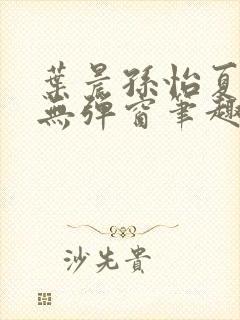 葉晨孫怡夏
無彈窗筆趣
沙先貴